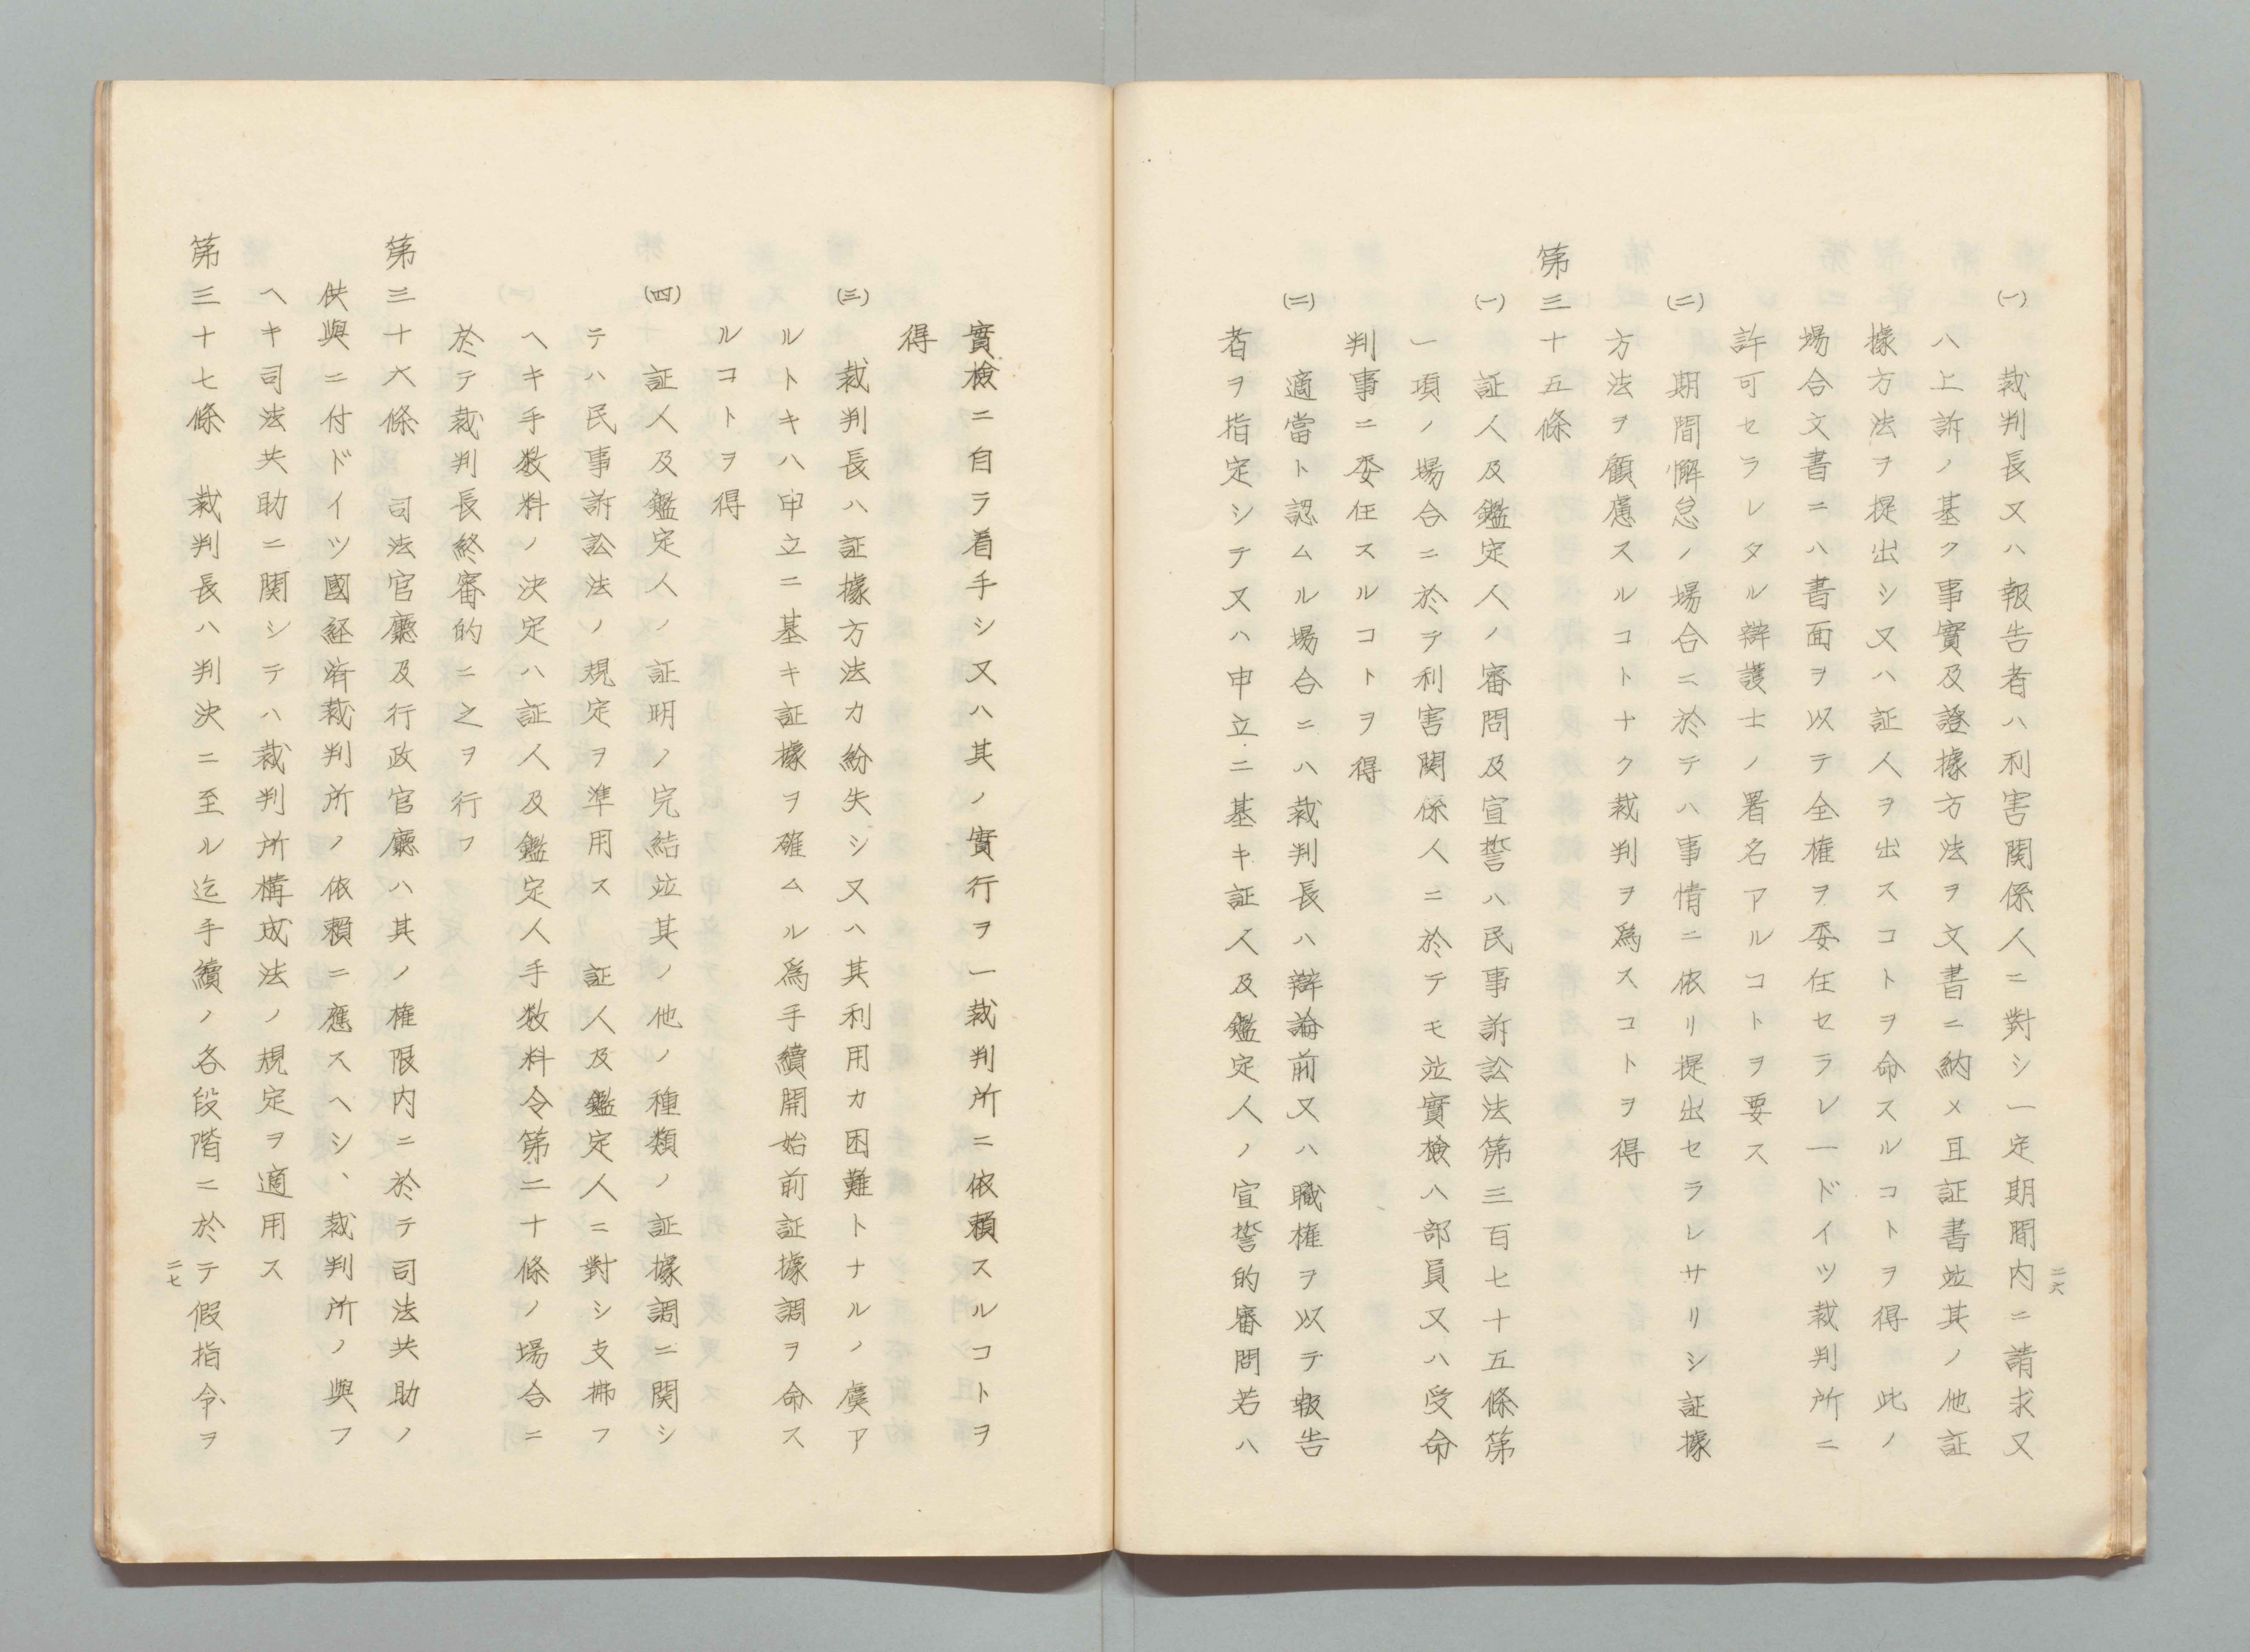 二六
(一) 裁判長又ハ報告者ハ利害関係人ニ對シ一定期間内ニ請求又
ハ上訴ノ基ク事實及證據方法ヲ文書ニ納メ且証書竝其ノ他証
據方法ヲ提出シ又ハ証人ヲ出スコトヲ命スルコトヲ得 此ノ
場合文書ニハ書面ヲ以テ全権ヲ委任セラレ一ドイツ裁判所ニ
許可セラレタル辯護士ノ署名アルコトヲ要ス
(二) 期間懈怠ノ場合ニ於テハ事情ニ依リ提出セラレサリシ証據
方法ヲ顧慮スルコトナク裁判ヲ爲スコトヲ得
第三十五條
(一) 証人及鑑定人ノ審問及宣誓ハ民事訴訟法第三百七十五條第
一項ノ場合ニ於テ利害関係人ニ於テモ竝實檢ハ部員又ハ受命
判事ニ委任スルコトヲ得
(二) 適當ト認ムル場合ニハ裁判長ハ辯論前又ハ職権ヲ以テ報告
者ヲ指定シテ又ハ申立ニ基キ証人及鑑定人ノ宣誓的審問若ハ
實檢ニ自ラ着手シ又ハ其ノ實行ヲ一裁判所ニ依頼スルコトヲ
得
(三) 裁判長ハ証據方法カ紛失シ又ハ其利用カ困難トナルノ虞ア
ルトキハ申立ニ基キ証據ヲ確ムル爲手續開始前証據調ヲ命ス
ルコトヲ得
(四) 証人及鑑定人ノ証明ノ完結竝其ノ他ノ種類ノ証據調ニ関シ
テハ民事訴訟法ノ規定ヲ準用ス 証人及鑑定人ニ對シ支拂フ
ヘキ手数料ノ決定ハ証人及鑑定人手数料令第二十條ノ場合ニ
於テ裁判長終審的ニ之ヲ行フ
第三十六條 司法官廳及行政官廳ハ其ノ権限内ニ於テ司法共助ノ
供與ニ付ドイツ國経済裁判所ノ依頼ニ應スヘシ、裁判所ノ與フ
ヘキ司法共助ニ関シテハ裁判所構成法ノ規定ヲ適用ス
第三十七條 裁判長ハ判決ニ至ル迄手續ノ各段階ニ於テ假指令ヲ
二七